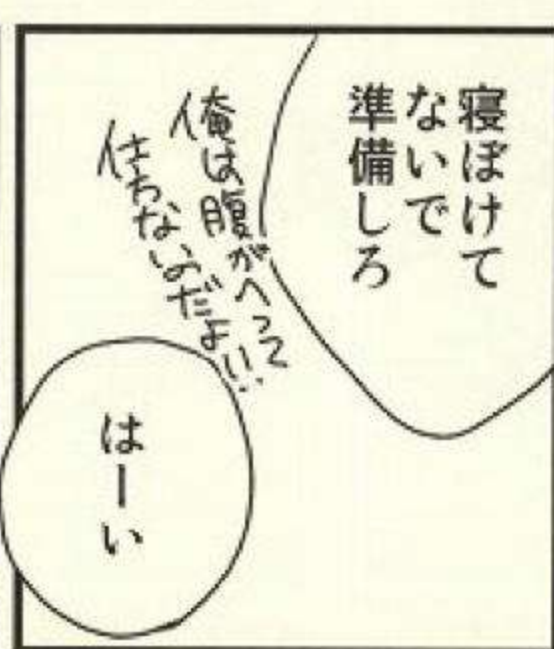 寝ぼけて
ないで
準備しろ
俺は腹がへって
仕方ないのだよ!!
はーい